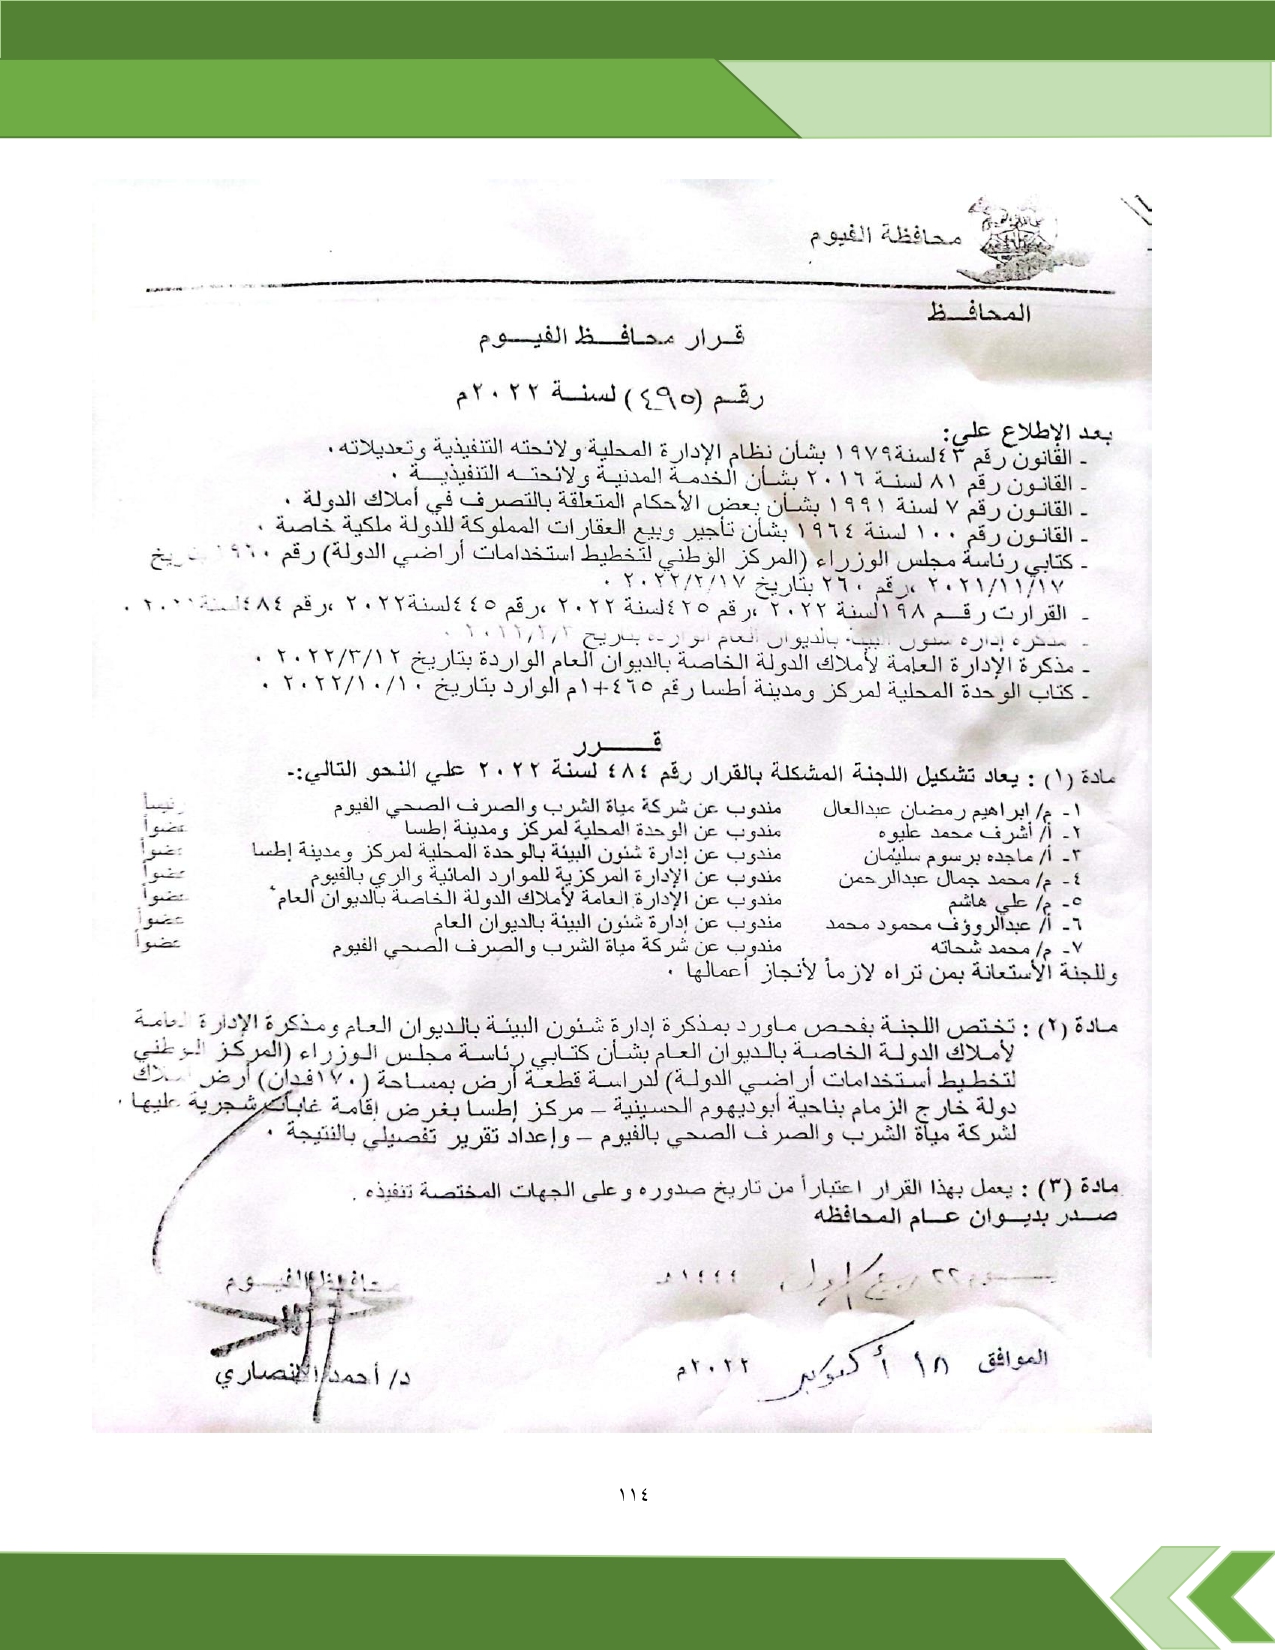 محافظة الفيوم
المحافــظ
قـرار محافــظ الفيــوم
رقـم (٤٩٥) لسنــة ٢٠٢٢م
بعد الإطلاع علي:
ـ القانون رقم ٤٣لسنة١٩٧٩ بشأن نظام الإدارة المحلية ولائحته التنفيذية وتعديلاته.
ـ القانون رقم ٨١ لسنة ٢٠١٦ بشأن الخدمة المدنية ولائحته التنفيذية .
ـ القانون رقم ٧ لسنة ١٩٩١ بشأن بعض الأحكام المتعلقة بالتصرف في أملاك الدولة .
ـ القانون رقم ١٠٠ لسنة ١٩٦٤ بشأن تأجير وبيع العقارات المملوكة للدولة ملكية خاصة .
ـ كتابي رئاسة مجلس الوزراء (المركز الوطني لتخطيط استخدامات أراضي الدولة) رقم ١٩٦٠ بتاريخ
٢٠٢١/١١/١٧ ،رقم ٢٦٠ بتاريخ ٢٠٢٢/٢/١٧ .
ـ القرارت رقـم ١٩٨لسنة ٢٠٢٢ ،رقم ٤٢٥لسنة ٢٠٢٢ ،رقم ٤٤٥لسنة٢٠٢٢ ،رقم ٤٨٤لسنة .
ـ مذكرة إدارة شئون البيئة بالديوان العام الواردة بتاريخ
ـ مذكرة الإدارة العامة لأملاك الدولة الخاصة بالديوان العام الواردة بتاريخ ٢٠٢٢/٣/١٢ .
ـ كتاب الوحدة المحلية لمركز ومدينة أطسا رقم ٤٦٥+١م الوارد بتاريخ ٢٠٢٢/١٠/١٠ .
قــــرر
مادة (١) : يعاد تشكيل اللجنة المشكلة بالقرار رقم ٤٨٤ لسنة ٢٠٢٢ علي النحو التالي:ـ
١ـ م/ ابراهيم رمضان عبدالعال مندوب عن شركة مياة الشرب والصرف الصحي الفيوم رئيساً
٢ـ أ/ أشرف محمد عليوه مندوب عن الوحدة المحلية لمركز ومدينة إطسا عضواً
٣ـ أ/ ماجده برسوم سليمان مندوب عن إدارة شئون البيئة بالوحدة المحلية لمركز ومدينة إطسا عضواً
٤ـ م/ محمد جمال عبدالرحمن مندوب عن الإدارة المركزية للموارد المائية والري بالفيوم عضواً
٥ـ م/ علي هاشم مندوب عن الإدارة العامة لأملاك الدولة الخاصة بالديوان العام عضواً
٦ـ أ/ عبدالرؤوف محمود محمد مندوب عن إدارة شئون البيئة بالديوان العام عضواً
٧ـ م/ محمد شحاته مندوب عن شركة مياة الشرب والصرف الصحي الفيوم عضواً
وللجنة الأستعانة بمن تراه لازماً لأنجاز أعمالها .
مادة (٢) : تختص اللجنة بفحص ماورد بمذكرة إدارة شئون البيئة بالديوان العام ومذكرة الإدارة العامة
لأملاك الدولة الخاصة بالديوان العام بشأن كتابي رئاسة مجلس الوزراء (المركز الوطني
لتخطيط أستخدامات أراضي الدولة) لدراسة قطعة أرض بمساحة (١٧٠فدان) أرض أملاك
دولة خارج الزمام بناحية أبوديهوم الحسينية – مركز إطسا بغرض إقامة غابات شجرية عليها .
لشركة مياة الشرب والصرف الصحي بالفيوم – وإعداد تقرير تفصيلي بالنتيجة .
مادة (٣) : يعمل بهذا القرار اعتباراً من تاريخ صدوره وعلى الجهات المختصة تنفيذه .
صـدر بديـوان عـام المحافظه
يـــوم ٢٢ ربيع الأول ١٤٤٤هـ
الموافق ١٨ أكتوبر ٢٠٢٢م
محافظ الفيــوم
د/ أحمد الأنصاري
١١٤